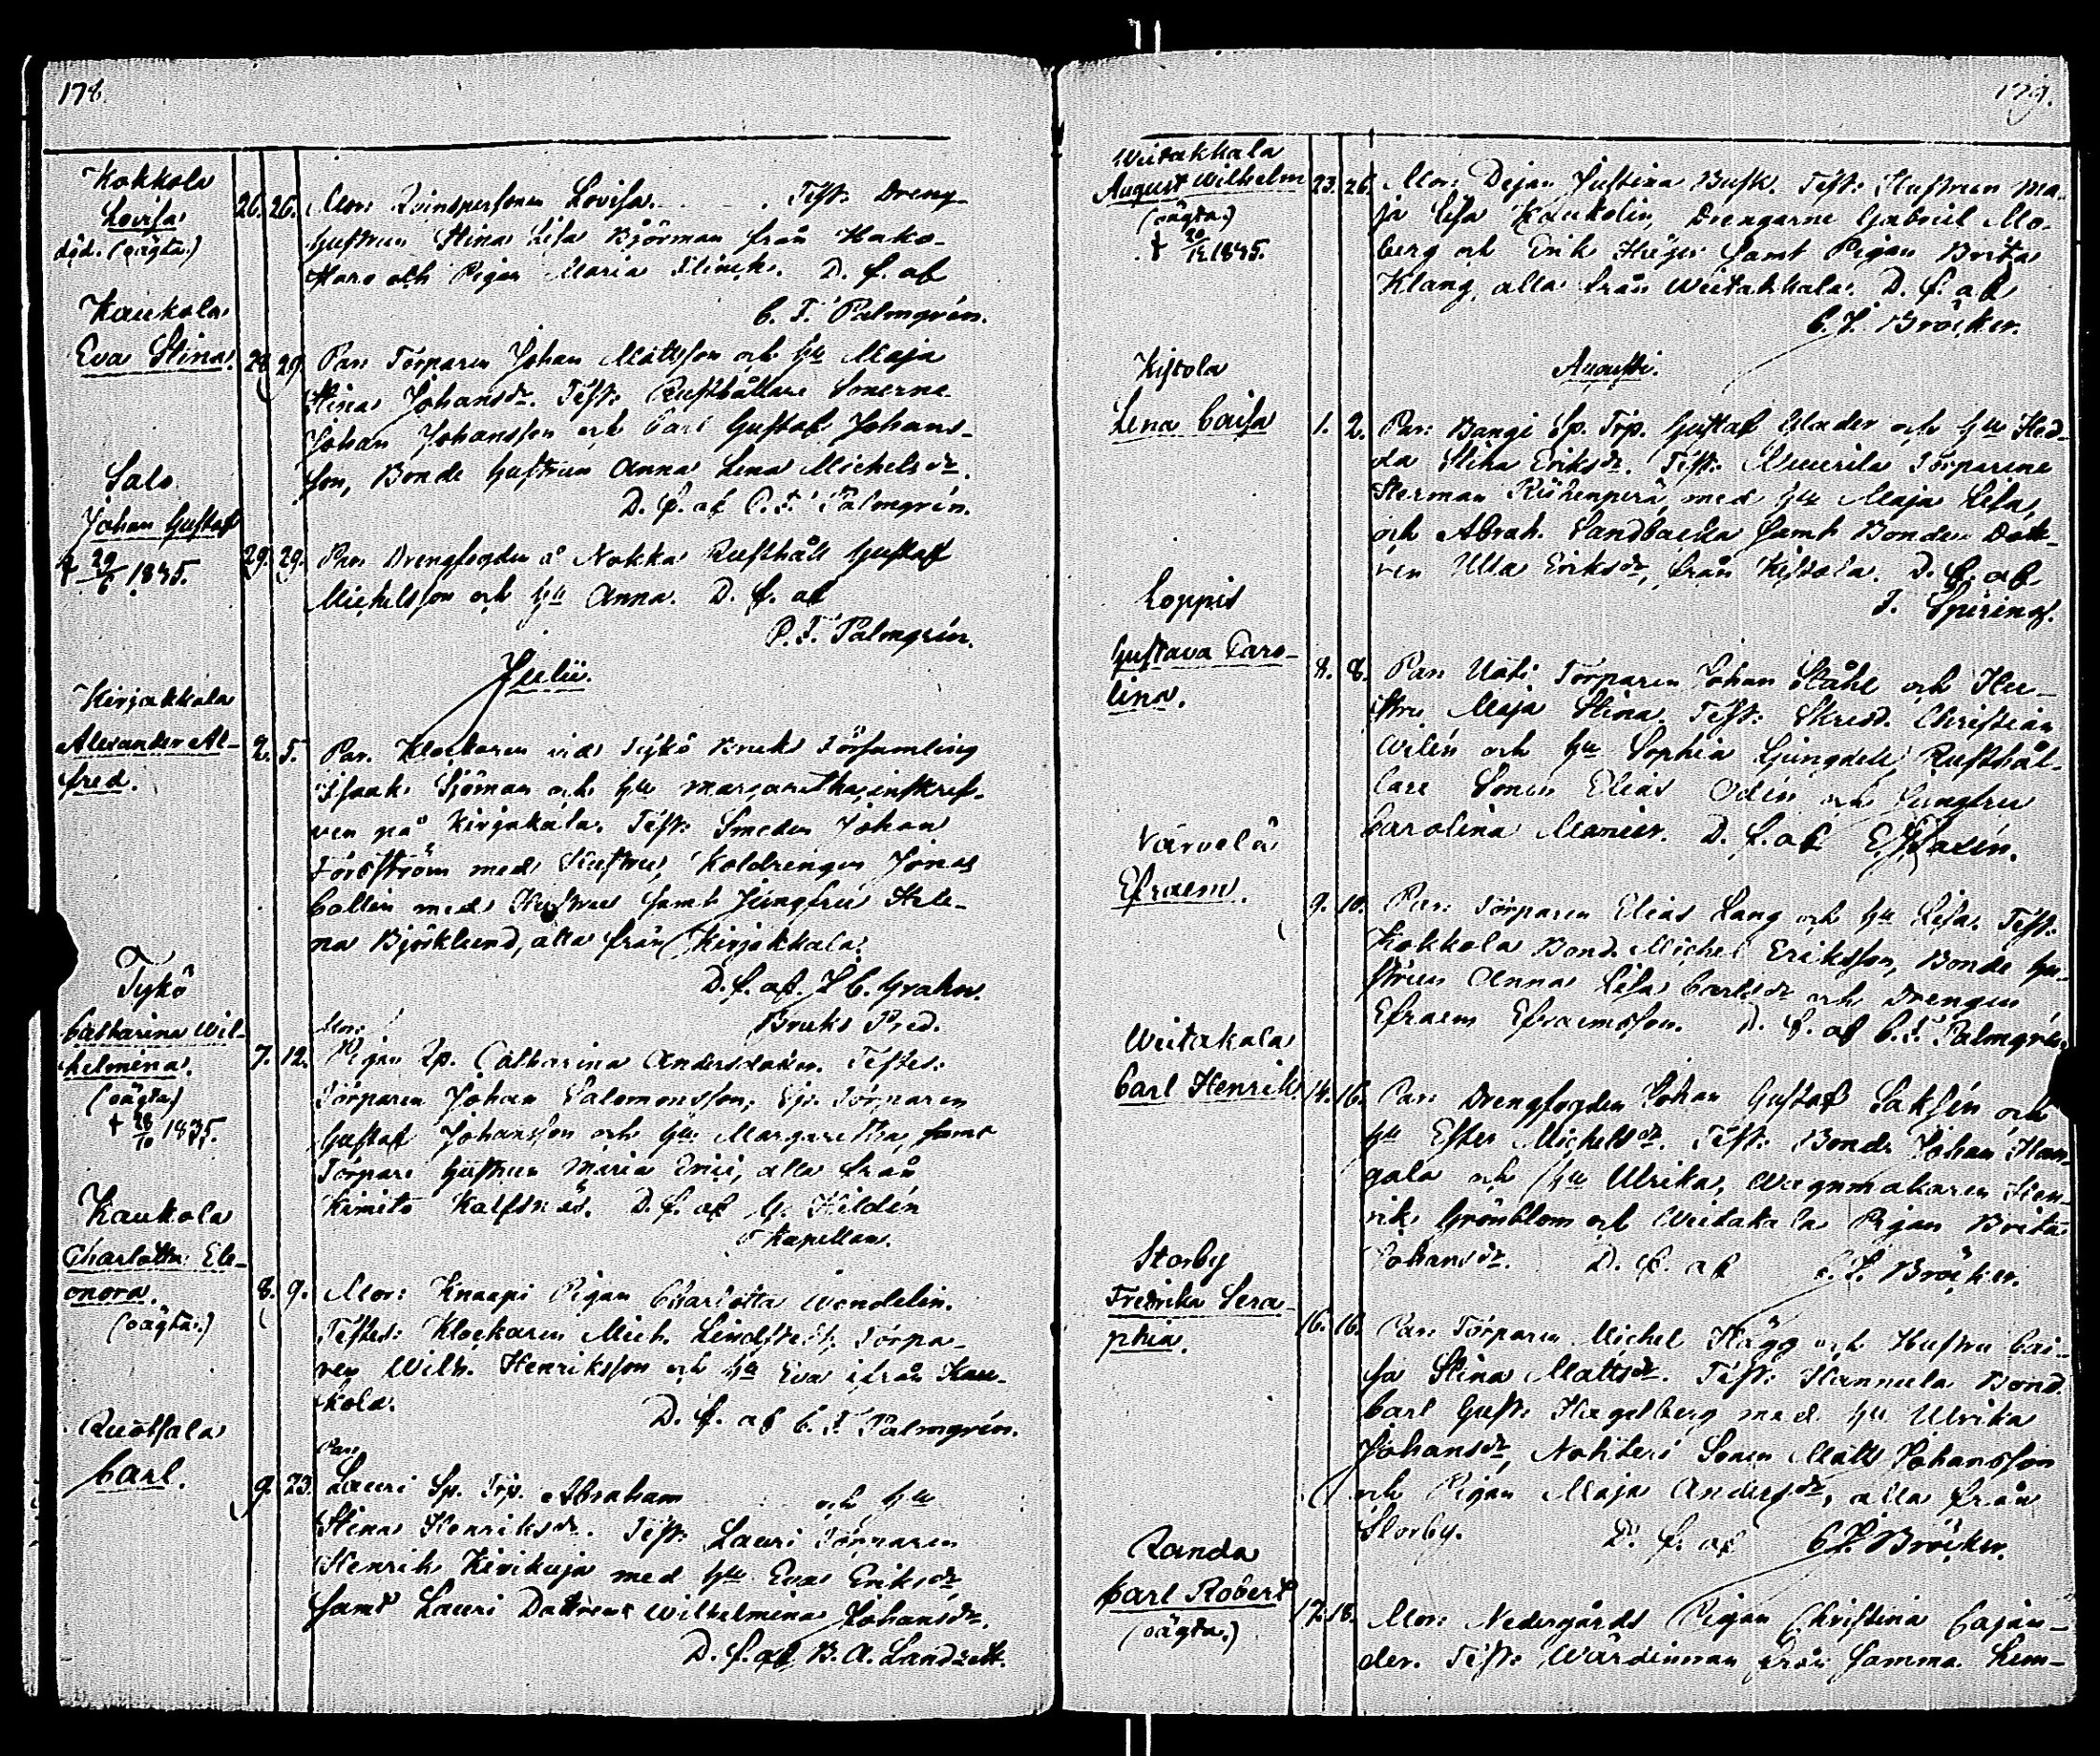 178.
Kokkola
Lovisa
död. (oägta.)
26. 26. Mor: Qvinspersonen Lovisa. Test: Dreng-
hustrun Stina Lisa Björman från Hako-
staro och Pigan Maria Flinck. D. f. af
C. F. Palmgrén.
Kaukola
Eva Stina.
28 29. Par: Torparen Johan Mattsson och hu Maja
Stina Johansdr. Test: Rusthållare Sönerne
Johan Johansson och Carl Gustaf Johans-
son, Bonde hustrun Anna Lena Michelsdr.
D. f. af C. F. Palmgrén.
Salo
Johan Gustaf
† 29/6 1835.
29. 29. Par: Drengfogden å Nokka Rusthåll Gustaf
Michelsson och hu Anna. D. f. af
C. F. Palmgrén.
Julii.
Kirjakkala
Alexander Al-
fred.
2. 5. Par. Klockaren vid Tykö Bruks Församling
Isaak Sjöman och hu Margaretha, inskref-
ven på Kirjakala. Test: Smeden Johan
Forsström med Hustru, Koldrengen Jonas
Collin med Hustru samt Jungfru Hele-
na Björklund, alla från Kirjakkala.
D. f. af J C. Grahn.
Bruks Pred.
Tykö
Catharina Wil-
helmina.
(oägta)
† 28/10 1835.
Mor:
7. 12. Pigan Qp. Catharina Andersdotter. Testes:
Torparen Johan Salomonsson, Torparen
Gustaf Johansson och hu Margaretha, samt
Torpare hustrun Maria, alla från
Kimito Kalfsnäs. D. f. af G. Hildén
Kapellan.
Kaukola
Charlotta Ele-
onora.
(oägta.)
8. 9. Mor: Knaapi Pigan Charlotta Wendelin.
Testes: Klockaren Mich. Lindstedt, Torpa-
ren Wilh. Henriksson och hu Eva ifrån Kau-
kola. D. f. af C. F. Palmgrén.
Ruotsala
Carl.
Par:
9. 23. Lauri Sp. Trp. Abraham och hu
Stina Henriksdr. Test: Lauri Torparen
Henrik Kivikuja med hu Eva Eriksdr
samt Lauri Dottren Wilhelmina Johansdr.
D. f. af B. A. Landzett.
179.
Wiitakkala
August Wilhelm
(oägta.)
† 20/12 1835.
23. 26. Mor: Dejan Justina Busk. Test: Hustrun Ma-
ja Lisa Kaukolin, Drengarne Gabriel Mo-
berg och Erik Heijer samt Pigan Brita
Klang, alla från Wiitakkala. D. f. af
C. J. Bröcker.
Augusti.
Kistola
Lena Caisa
1. 2. Par: Bangi Sp. Trp. Gustaf Glader och hu Hed-
da Stina Eriksdr. Test: Muurila Torparene
Herman Riihenperä, med hu Maja Lisa,
och Abrah. Sandbacka samt Bonde Dott-
ren Ulla Eriksdr, från Kistola. D. f. af
J. Spiring.
Loppis
Gustava Caro-
lina.
8. 8. Par: Uoti Torparen Johan Ståhl och Hu-
stru Maja Stina. Test: Skredd. Christian
Wilén och hu Sophia Ljungdell, Rusthål-
lare Sonen Elias Odén och Jungfru
Carolina Manier. D. f. af E. Saxén.
Värvelä
Efraem.
9. 10. Par: Torparen Elias Lang och hu Lisa. Test:
Kokkola Bond. Michel Eriksson, Bonde hu-
strun Anna Lisa Carlsdr och Drengen
Efraem Efraemsson. D. f. af C. F. Palmgrén
Wiitakala
Carl Henrik
14. 16. Par: Drengfogden Johan Gustaf Saksén och
hu Ester Michelsdr. Test: Bonde Johan Han-
gala och hu Ulrika, Wagnmakaren Hen-
rik Grönblom och Wiitakala Pigan Brita
Johansdr. D. f. af C. J. Bröcker.
Storby
Fredrika Sera-
phia.
16. 16. Par: Torparen Michel Hägg och Hustru Cai-
sa Stina Mattsdr. Test: Hannula Bond.
Carl Gust. Hagelberg med hu Ulrika
Johansdr, Nohteri Sonen Matts Johansson
och Pigan Maja Andersdr, alla från
Storby. D. f. af C J. Bröcker.
Randa
Carl Robert
(oägta.)
17. 18. Mor: Nedergårds Pigan Christina Cajan-
der. Test: Wärdinnan från samma Hem-